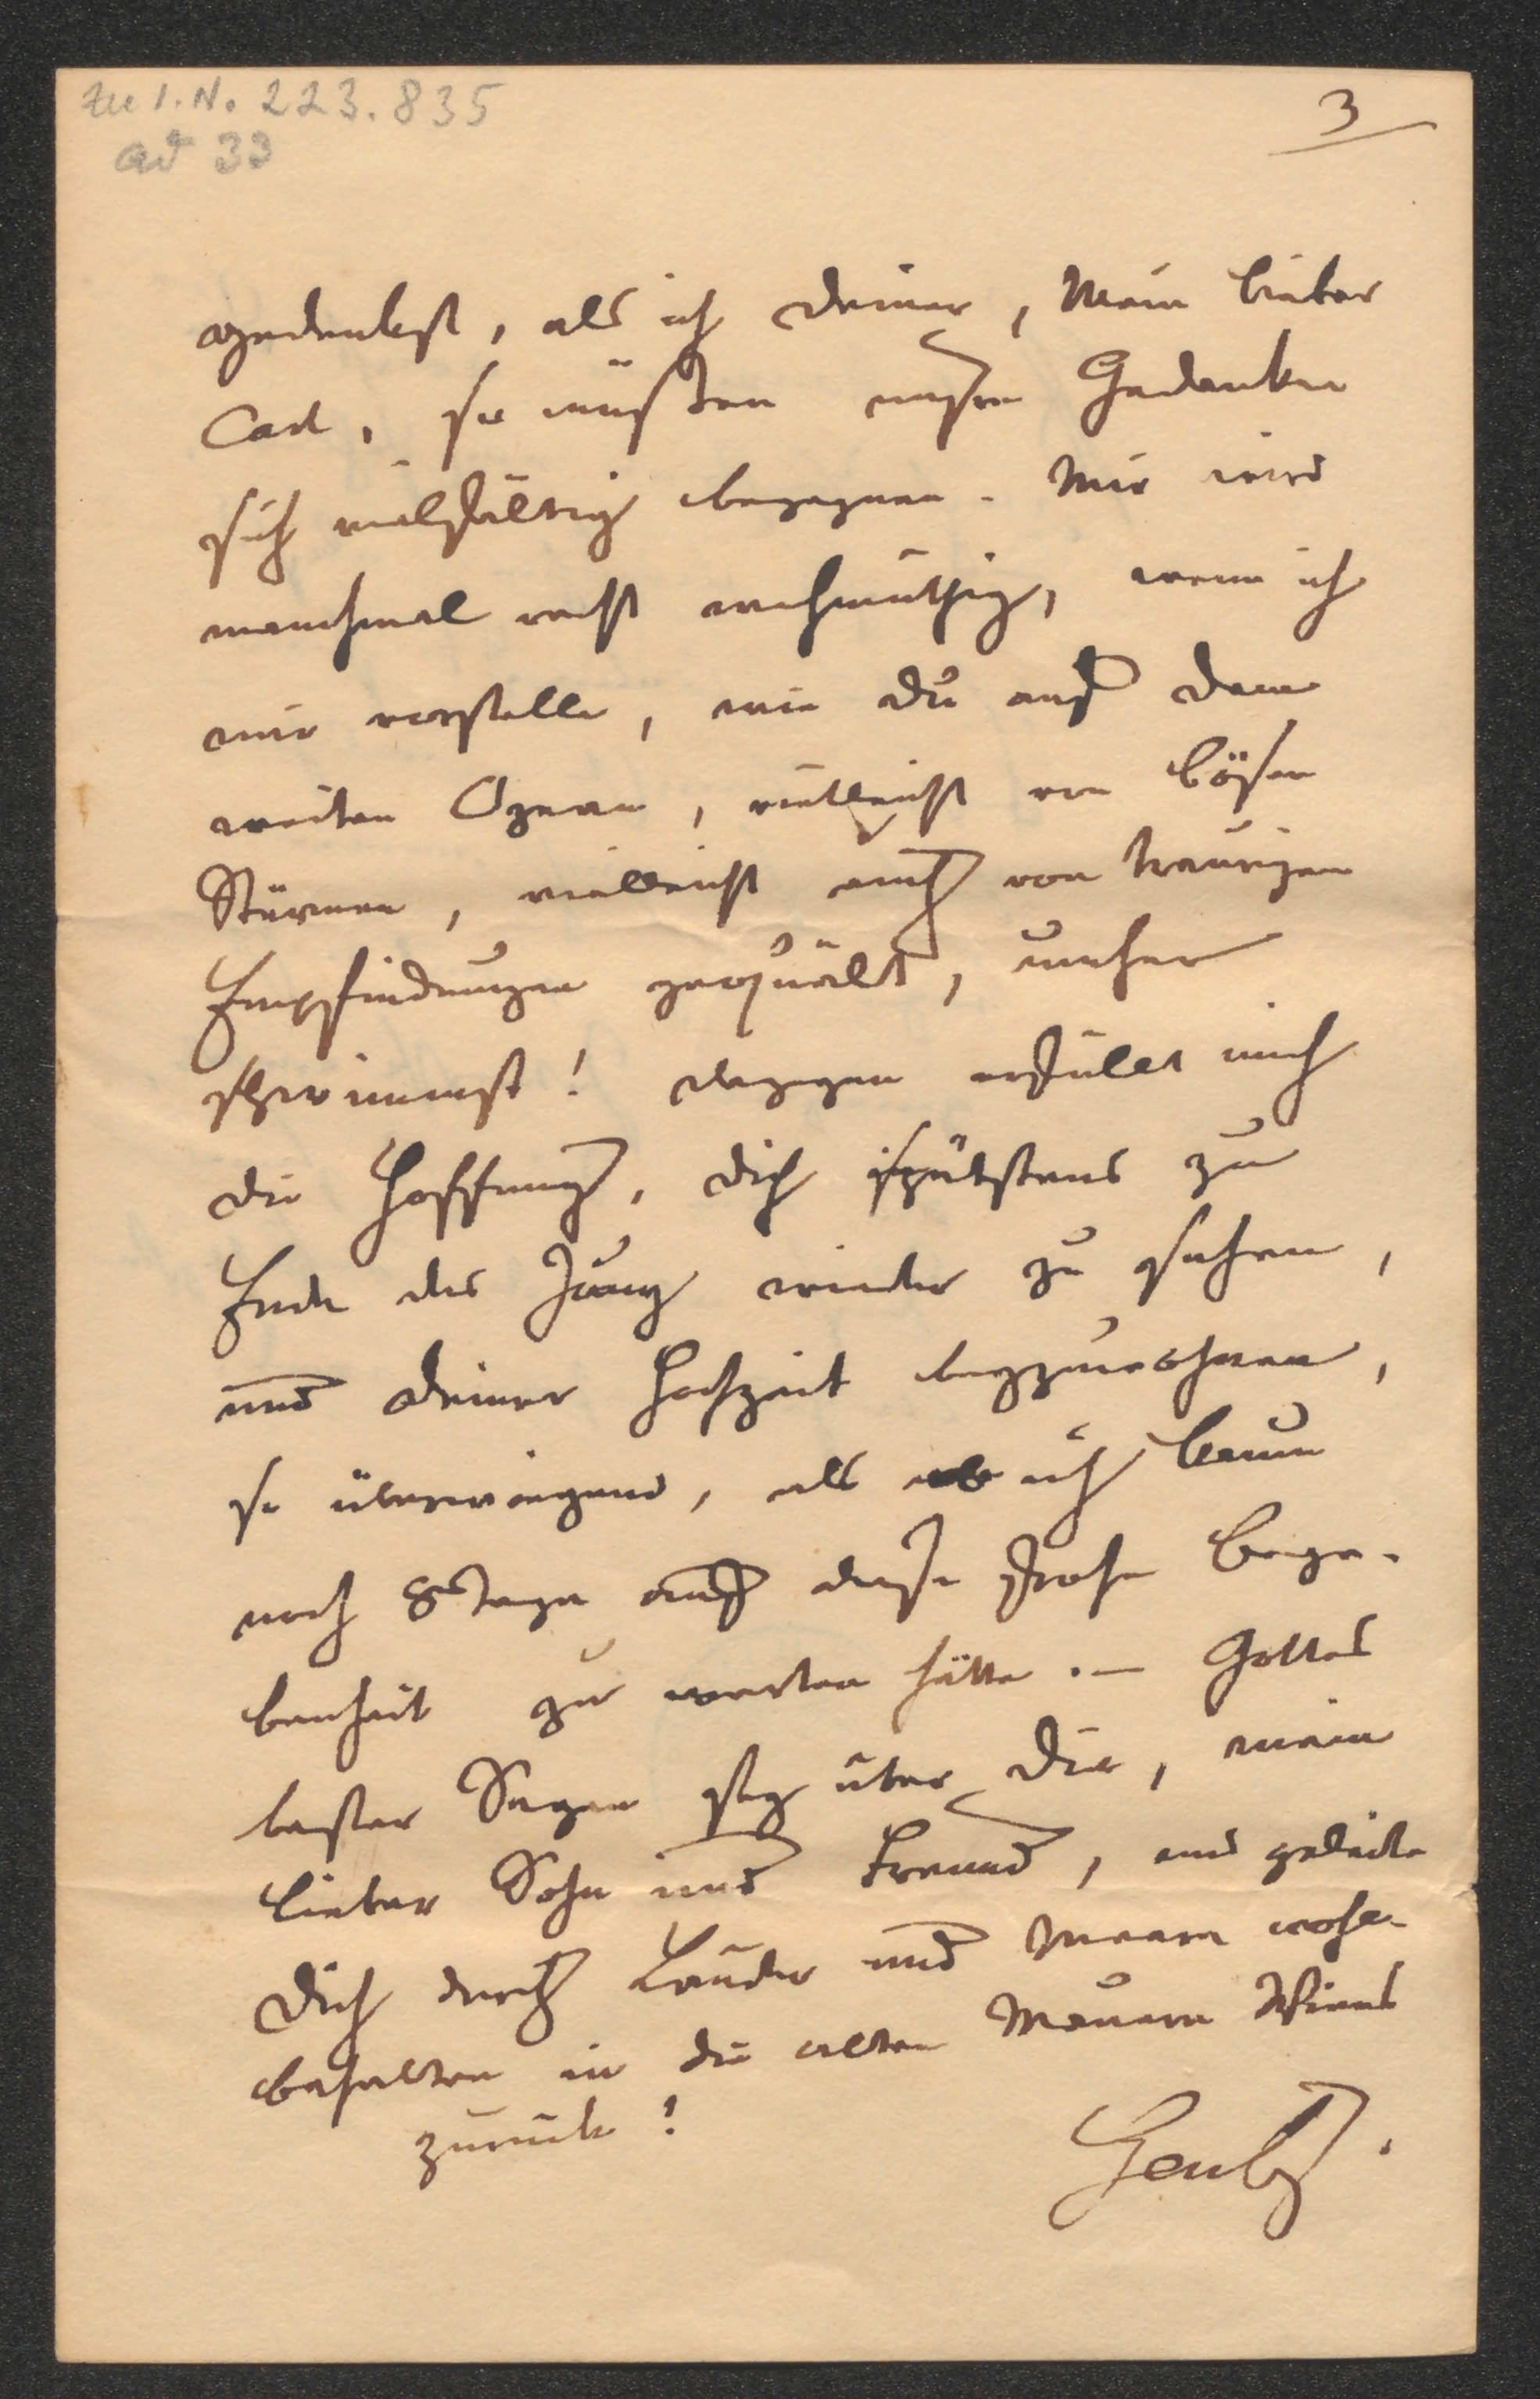 zu I.N. 223.835
ad 33
3
gedenkst, als ich deiner, Mein lieber
Carl, so müßten unsre Gedanken
sich vielfältig begegnen. Mir wird
manchmal recht wehmüthig, wenn ich
mir vorstelle, wie du auf dem
weiten Ozean, vielleicht von bösen
Stürmen, vielleicht auch von traurigen
Empfindungen gequält, umher
schwimmst! dagegen erfüllt mich
die Hoffnung, dich spätstens zu
Ende des Juny wieder zu sehen,
und deiner Hochzeit beyzuwohnen,
so überwiegend, als ob ich kaum
noch 8 Tage auf diese frohe Bege-
benheit zu warten hätte. – Gottes
bester Segen sey über Dir, mein
lieber Sohn und Freund, und geleite
dich durch Länder und Meere wohl-
behalten in die alten Mauern Wiens
zurück!
Gentz.